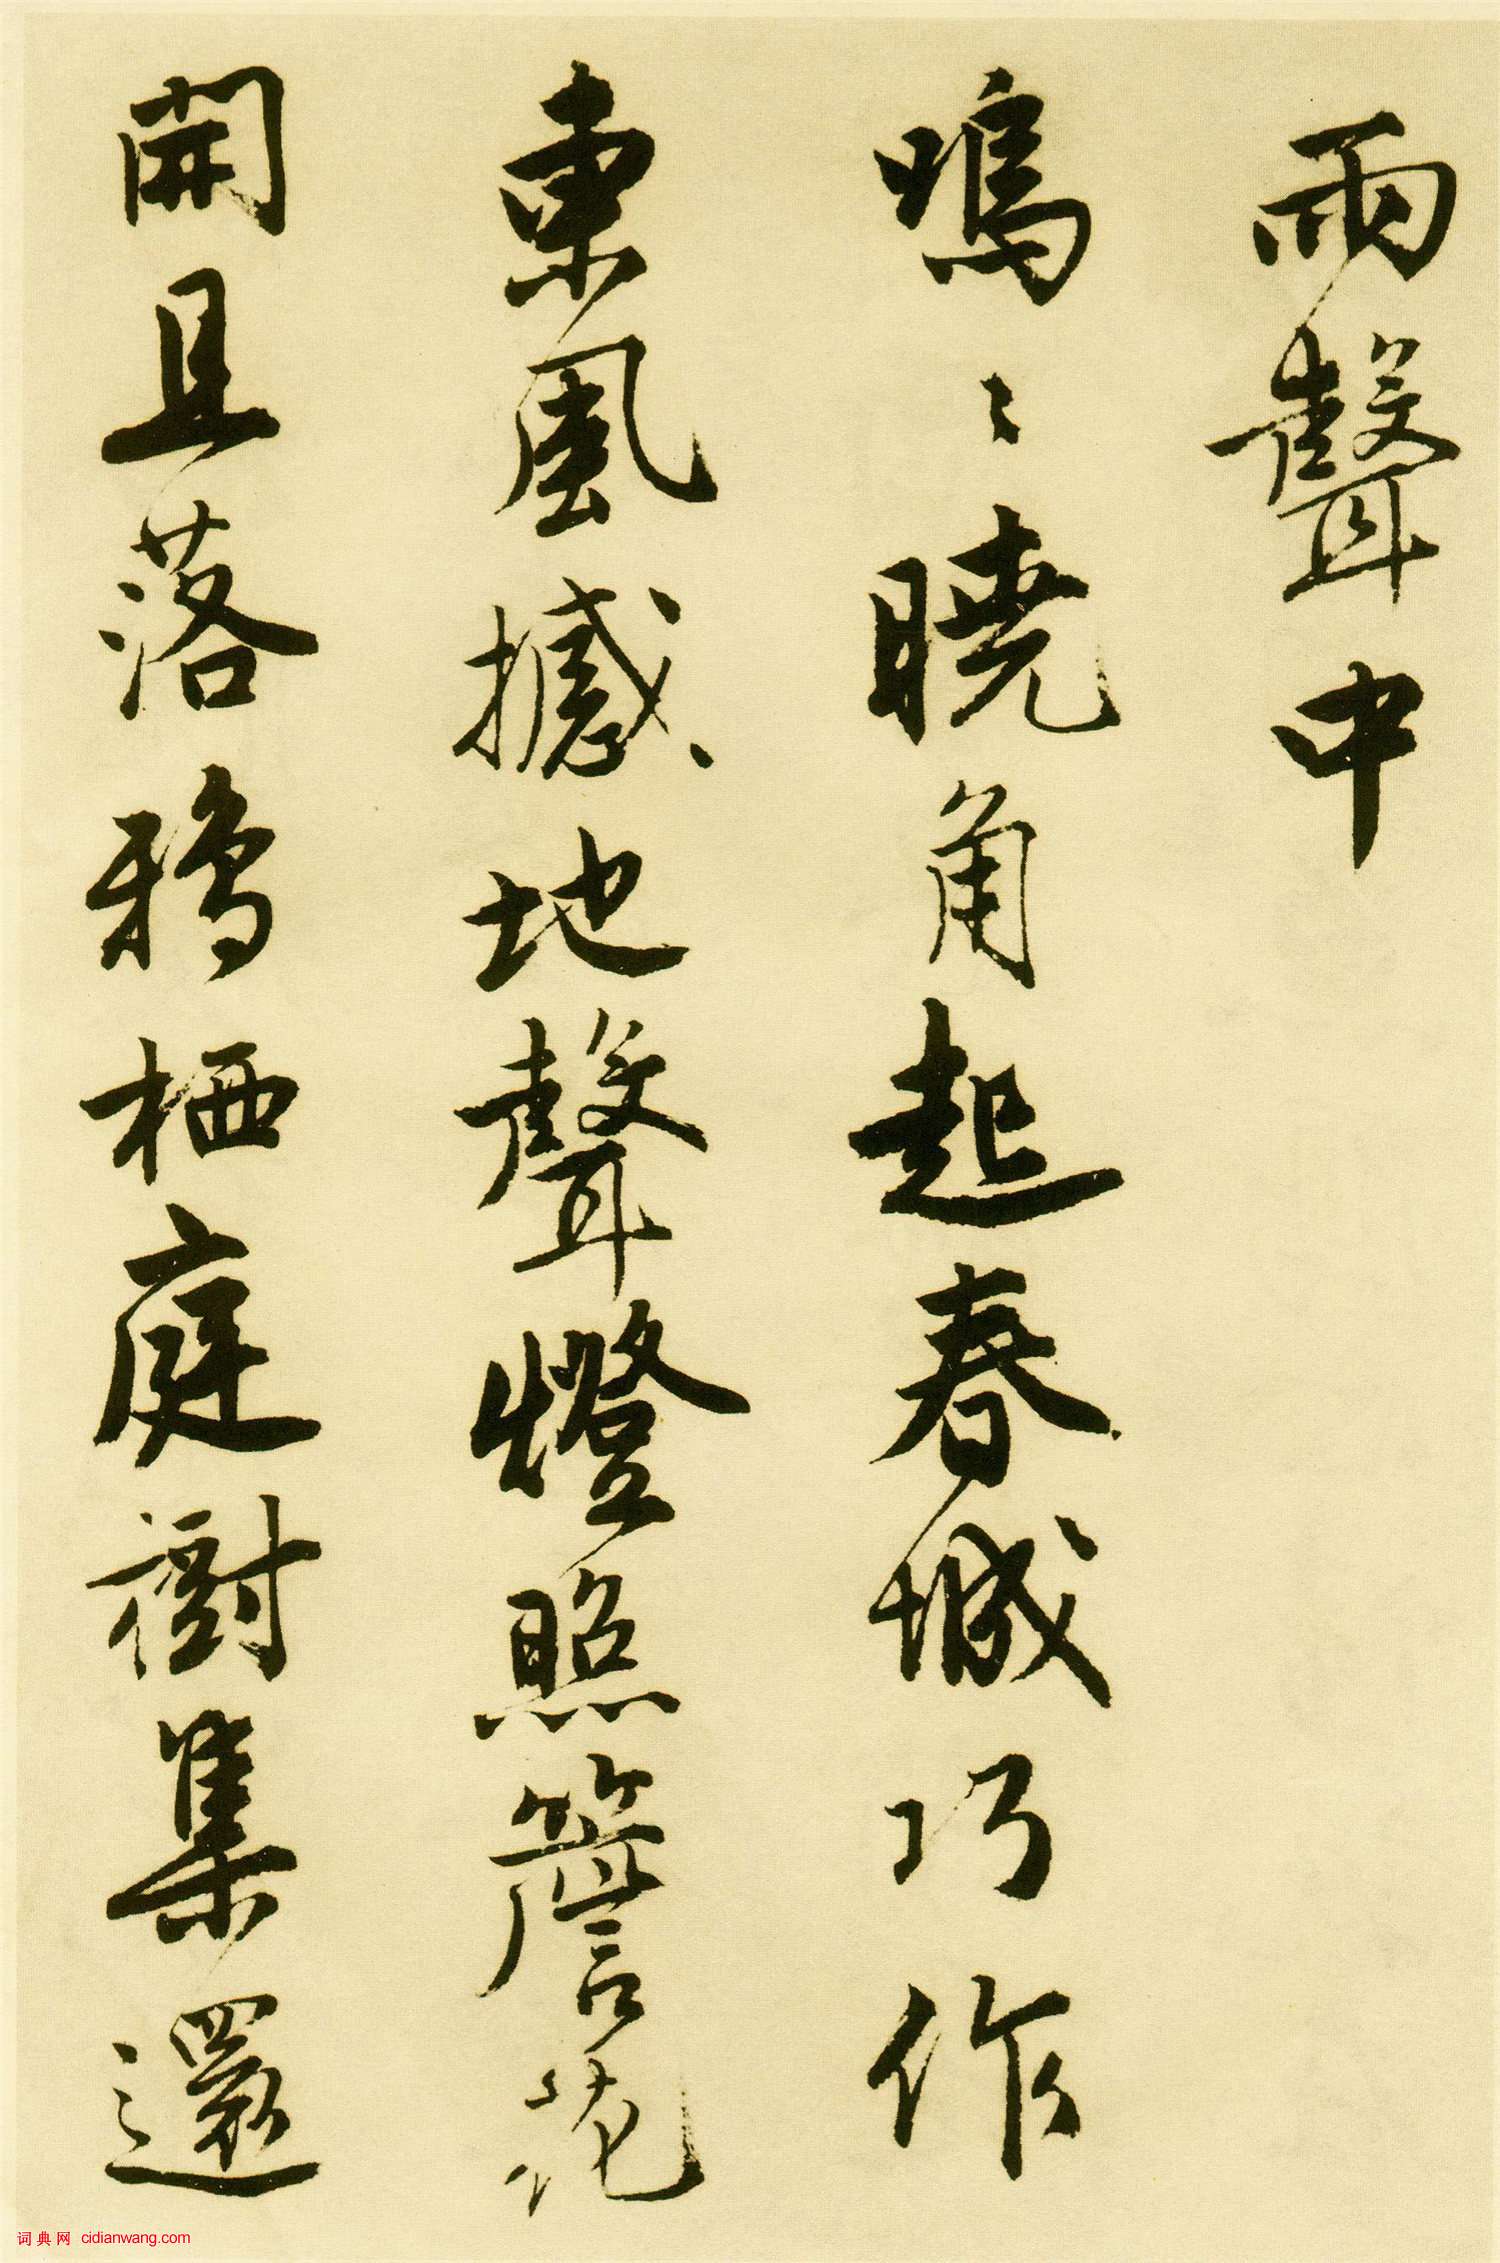 雨聲中
嗚〻曉角起春城巧作
東風撼地聲燈照簷花
開且落鴉栖庭樹集還
词典网 cidianwang.com